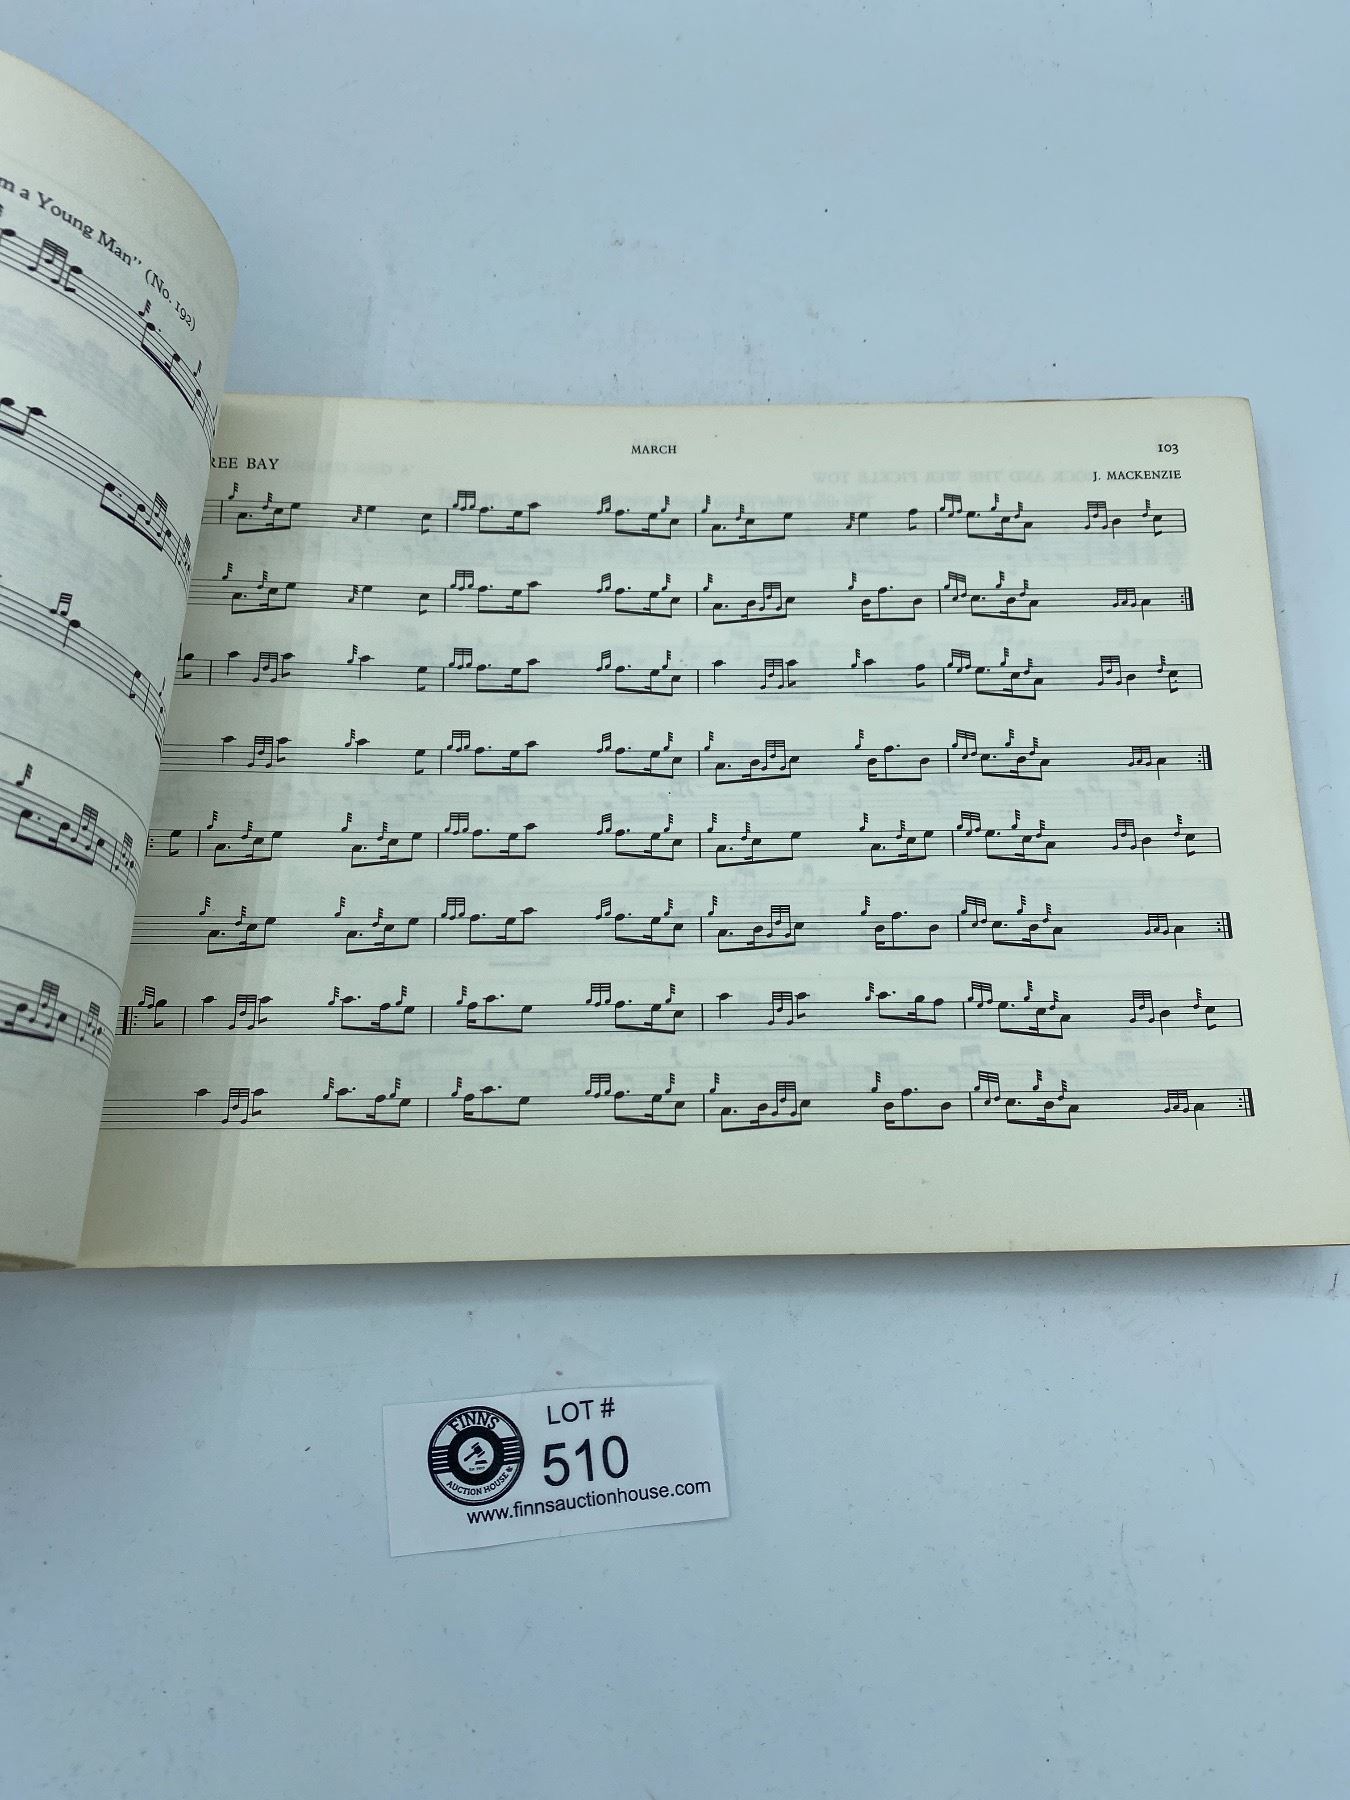 m a Young Man" (No. 192)
MARCH
103
REE BAY
J. MACKENZIE
FINNS
AUCTION HOUSE
LOT #
510
www.finnsauctionhouse.com